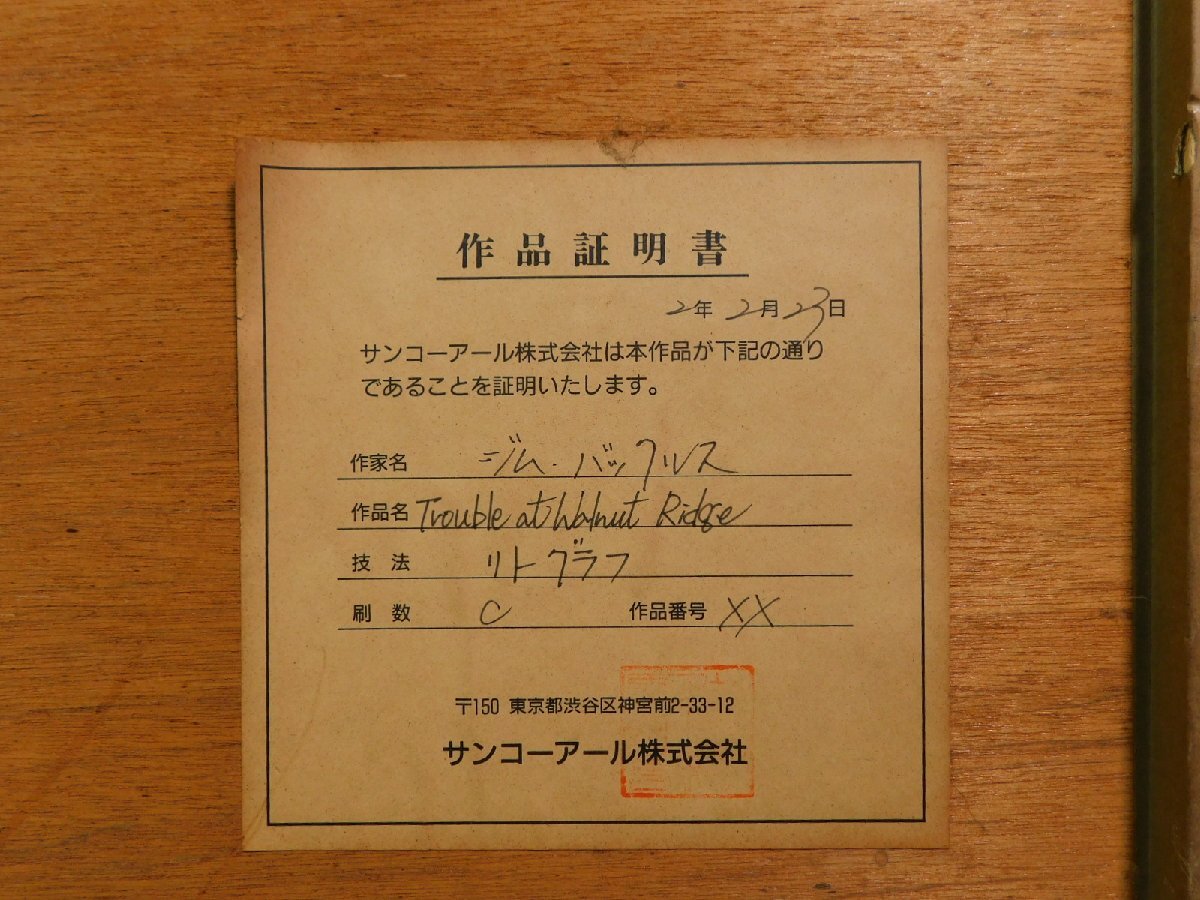 作品証明書
2年 2月 23日
サンコーアール株式会社は本作品が下記の通り
であることを証明いたします。
作家名 ジム・バックルス
作品名 Trouble at Walnut Ridge
技法 リトグラフ
刷数 C 作品番号 XX
〒150 東京都渋谷区神宮前2-33-12
サンコーアール株式会社